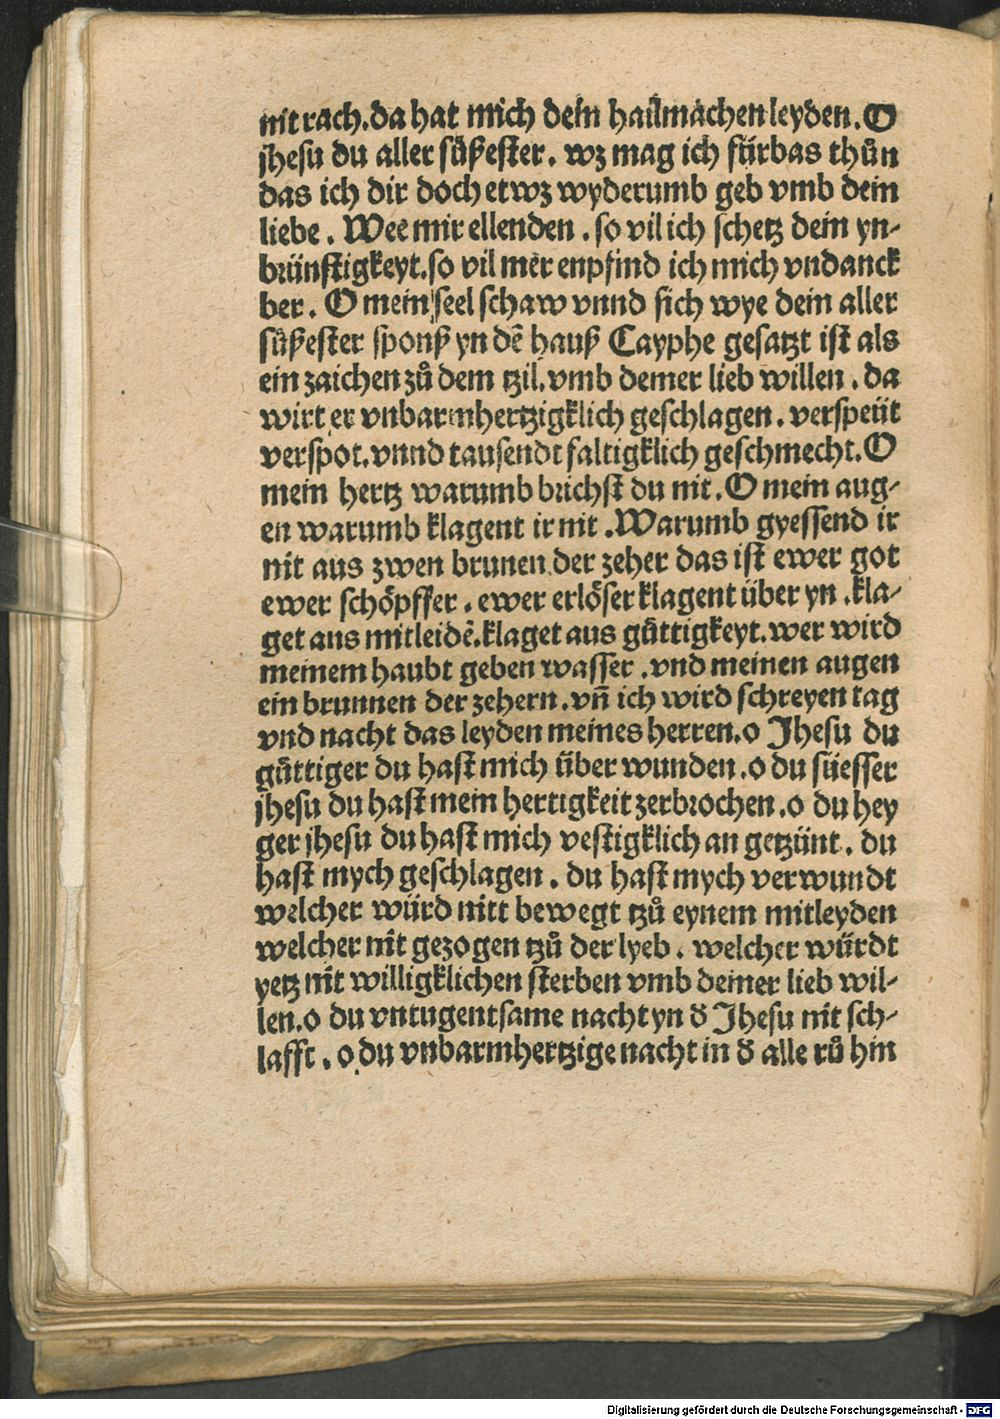 nit rach. da hat mich dein hailmachen leyden. O
jhesu du aller sůßester. wz mag ich fürbas thůn
das ich dir doch etwz wyderumb geb vmb dein
liebe. Wee mir ellenden. so vil ich schetz dein yn-
brünstigkeyt. so vil mer enpfind ich mich vndanck
ber. O mein seel schaw vnnd sich wye dein aller
sůßester sponß yn dẽ hauß Cayphe gesatzt ist als
ein zaichen zů dem tzil. vmb deiner lieb willen. da
wirt er vnbarmhertzigklich geschlagen. verspeüt
verspot. vnnd tausendt faltigklich geschmecht. O
mein hertz warumb brichst du nit. O mein aug-
en warumb klagent ir nit. Warumb gyessend ir
nit aus zwen brunen der zeher das ist ewer got
ewer schöpffer. ewer erlöser klagent über yn. kla-
get aus mitleidẽ. klaget aus gůttigkeyt. wer wird
meinem haubt geben wasser. vnd meinen augen
ein brunnen der zehern. vñ ich wird schreyen tag
vnd nacht das leyden meines herren. o Jhesu du
gůttiger du hast mich über wunden. o du süesser
jhesu du hast mein hertigkeit zerbrochen. o du hey
ger jhesu du hast mich vestigklich an getzünt. du
hast mych geschlagen. du hast mych verwundt
welcher würd nitt bewegt tzů eynem mitleyden
welcher nit gezogen tzů der lyeb. welcher würdt
yetz nit willigklichen sterben vmb deiner lieb wil-
len. o du vntugentsame nacht yn đ Jhesu nit sch-
lafft. o du vnbarmhertzige nacht in đ alle rů hin
Digitalisierung gefördert durch die Deutsche Forschungsgemeinschaft - DFG